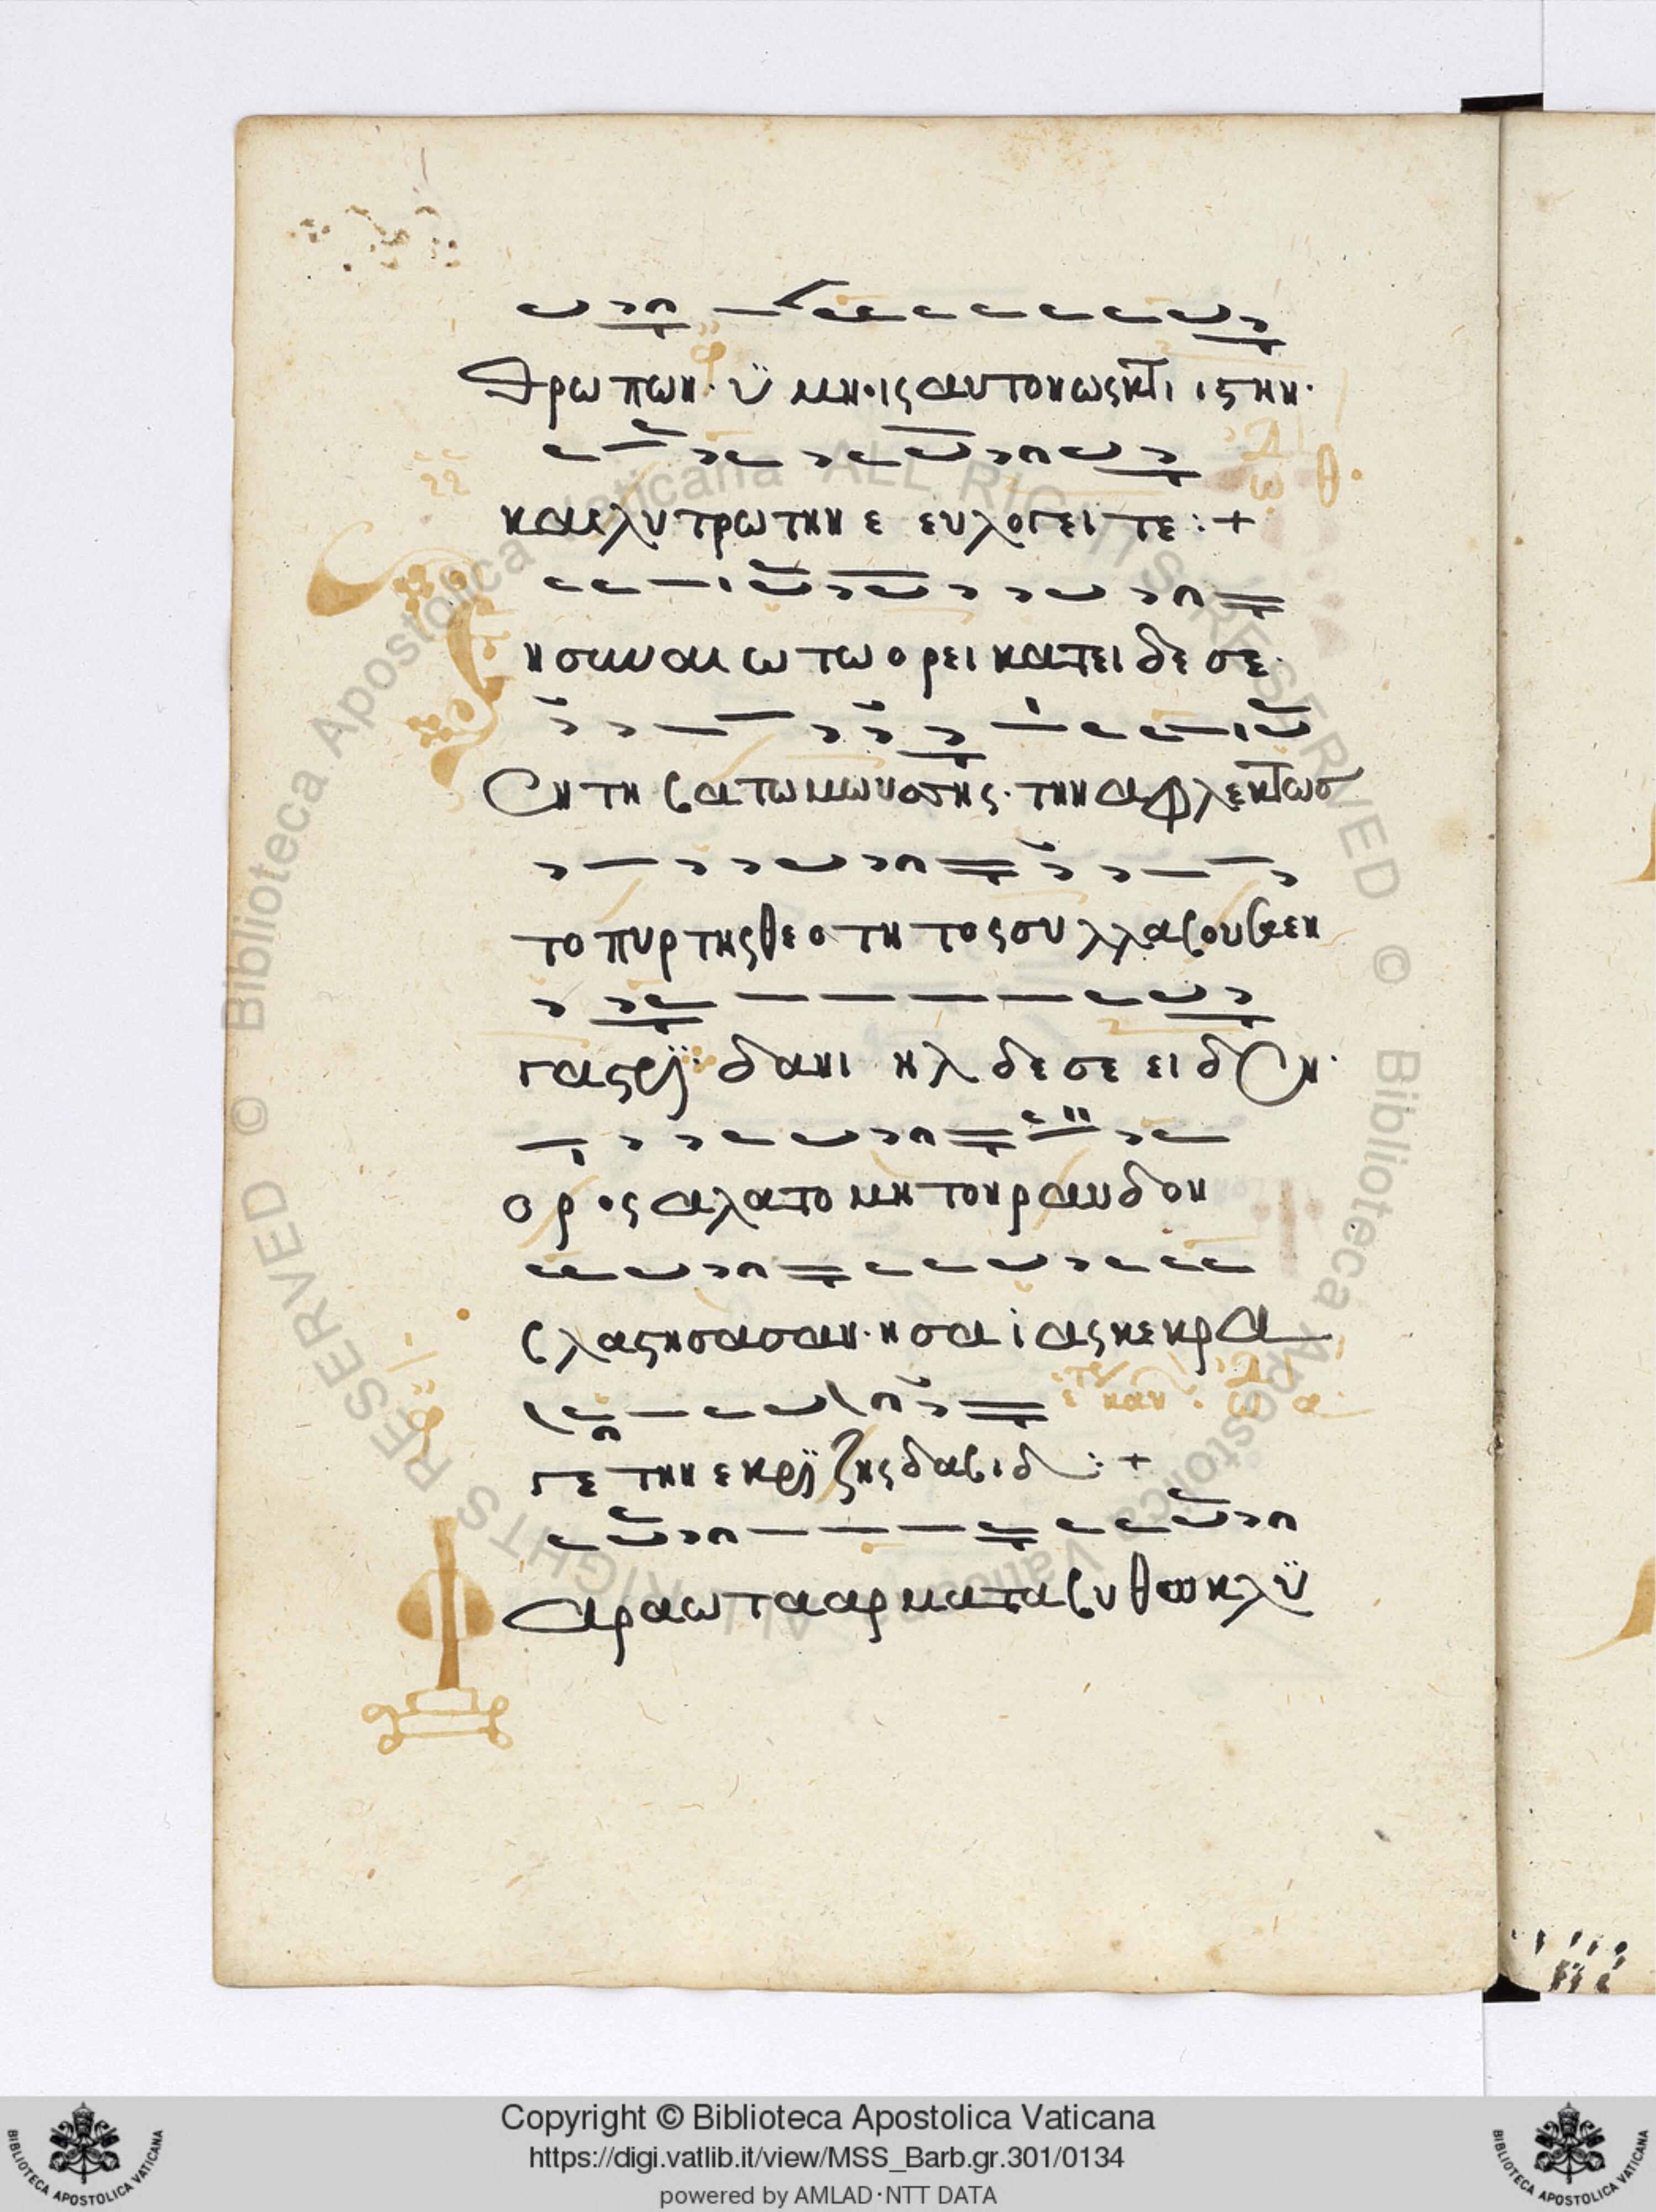 θρωπων· ϋμνοις αυτον ως κτιστην·
και λυτρωτην ε ευλογειτε : +
ν σιναιω τω ορει κατειδε σε·
εν τη βατω μωυσης· την αφλεκτωσ
το πυρ της θεοτητος συλλαβουσαεν
γαστρϊ· δανιηλ δε σε ειδεν·
ορος αλατομητον ραυδον
βλαστησασαν· ησαϊας κεκρα
γε την εκ ρϊζης δαβιδ : +
αραω τα αρματα βυθω κλϋ
Copyright © Biblioteca Apostolica Vaticana
https://digi.vatlib.it/view/MSS_Barb.gr.301/0134
powered by AMLAD·NTT DATA
BIBLIOTECA APOSTOLICA VATICANA
BIBLIOTECA APOSTOLICA VATICANA
© Biblioteca Apostolica Vaticana ALL RIGHTS RESERVED
© Biblioteca Apostolica Vaticana ALL RIGHTS RESERVED